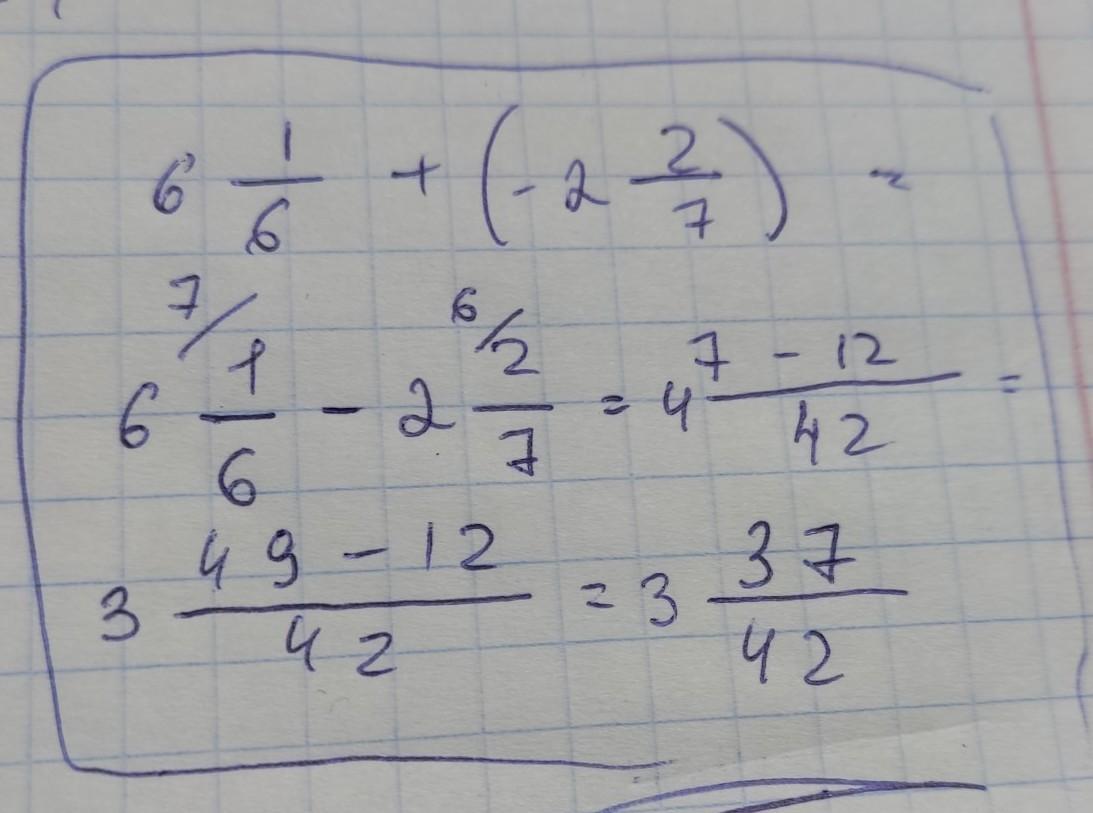 6 1/6 + (-2 2/7) =
6 7/1/6 - 2 6/2/7 = 4 7 - 12/42 =
3 49 - 12/42 = 3 37/42